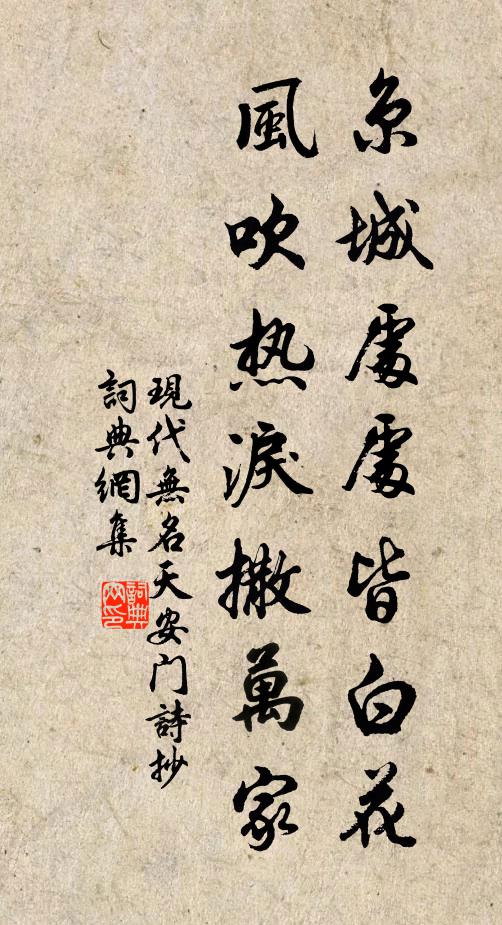 京城處處皆白花
風吹热淚撒萬家
現代無名天安门詩抄
詞典網集
詞典网印